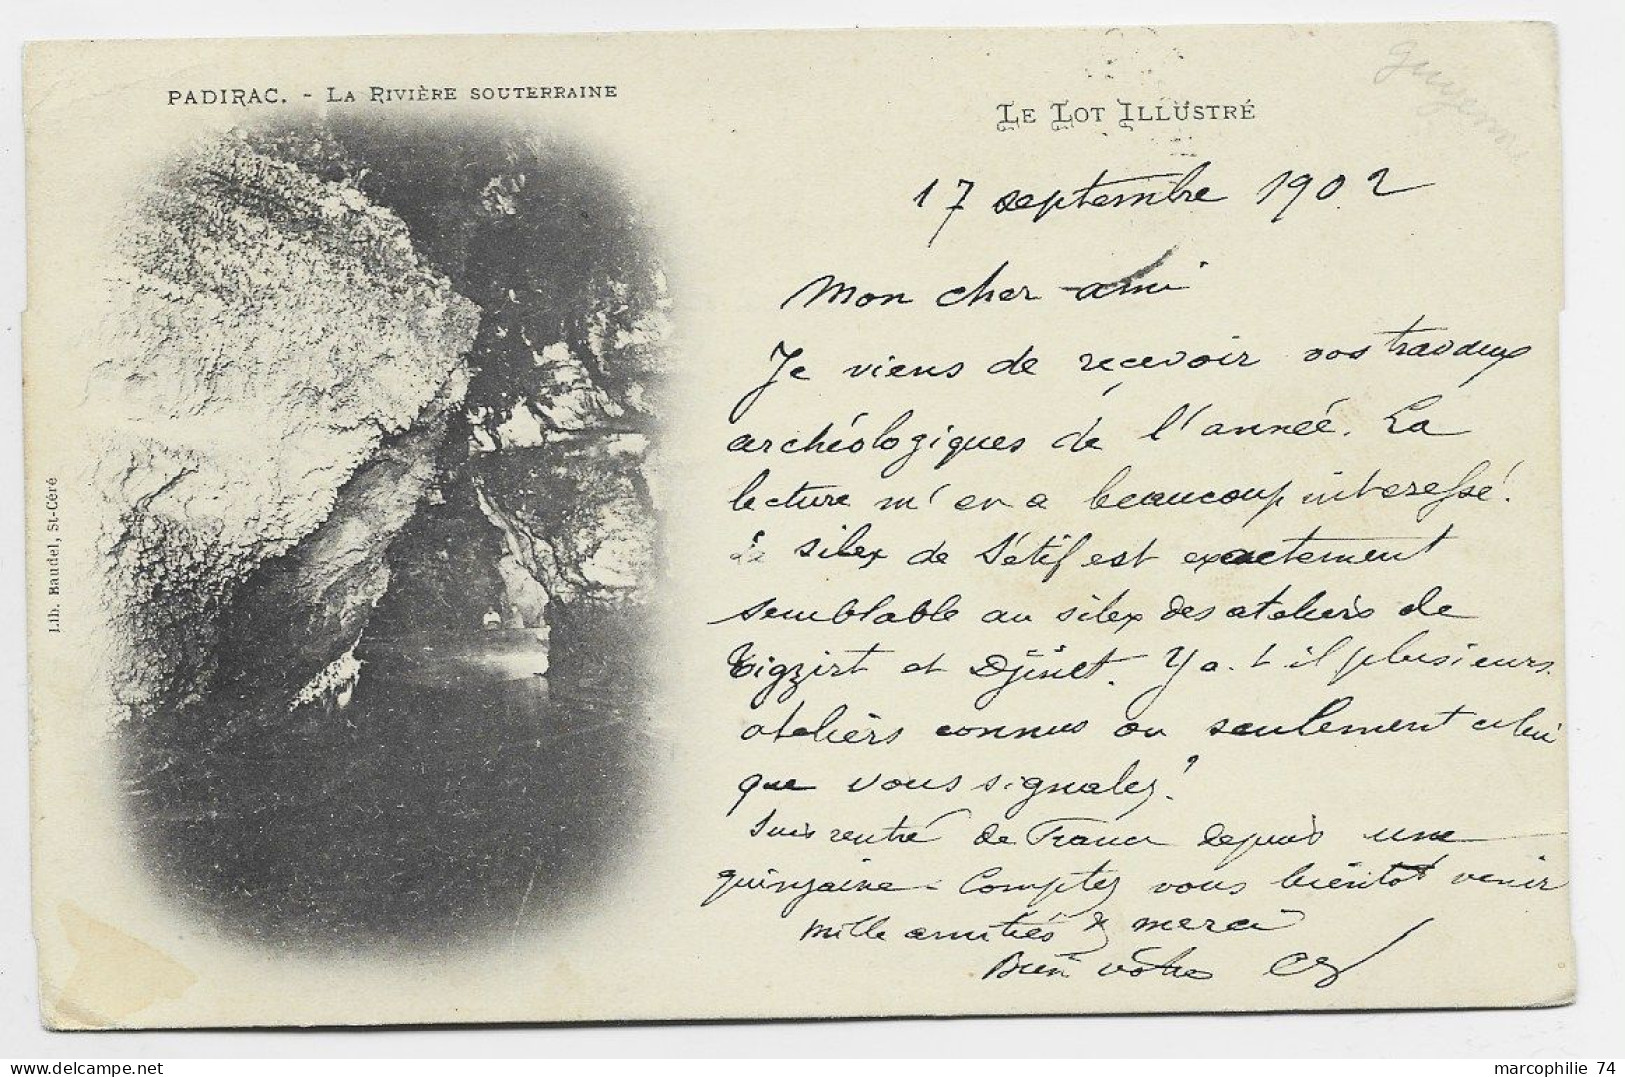 PADIRAC. - LA RIVIÈRE SOUTERRAINE
LE LOT ILLUSTRÉ
17 septembre 1902
Mon cher ami
Je viens de recevoir vos travaux
archéologiques de l'année. La
lecture m'en a beaucoup interessé.
Le silex de Sétif est exactement
semblable au silex des ateliers de
Tigzirt et Djinet. Y a-t-il plusieurs
ateliers connus ou seulement celui
que vous signalez?
Suis rentré de France depuis une
quinzaine - Comptez vous bientôt venir
Mille amitiés & merci
Bien votre
Lib. Baudel, St-Céré
marcophilie 74